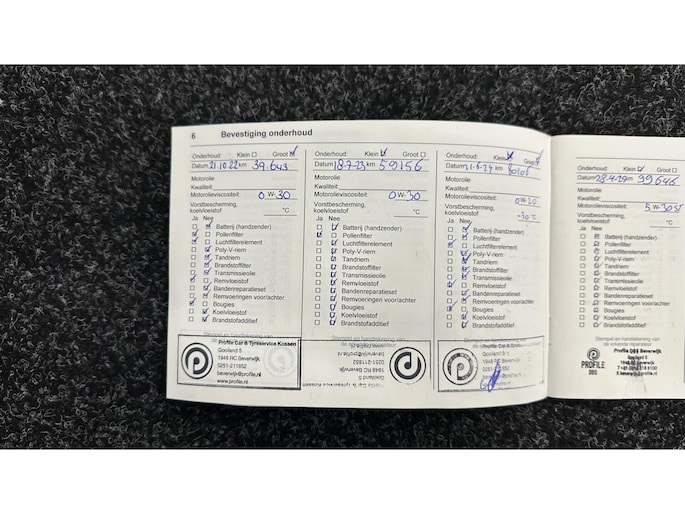 6 Bevestiging onderhoud
Onderhoud: Klein Groot
Datum 21.10.22 km 39.643
Motorolie
Kwaliteit:
Motorolieviscositeit: 0 W-30
Vorstbescherming,
koelvloeistof °C
Ja Nee
Batterij (handzender)
Pollenfilter
Luchtfilterelement
Poly-V-riem
Tandriem
Brandstoffilter
Transmissieolie
Remvloeistof
Bandenreparatieset
Remvoeringen voor/achter
Bougies
Koelvloeistof
Brandstofadditief
Stempel en handtekening van
Profile Car & Tyreservice Klossen
Gooiland 5
1948 RC Beverwijk
0251-211852
beverwijk@profile.nl
www.profile.nl
Onderhoud: Klein Groot
Datum 18.7.23 km 59156
Motorolie
Kwaliteit:
Motorolieviscositeit: 0 W-30
Vorstbescherming,
koelvloeistof °C
Ja Nee
Batterij (handzender)
Pollenfilter
Luchtfilterelement
Poly-V-riem
Tandriem
Brandstoffilter
Transmissieolie
Remvloeistof
Bandenreparatieset
Remvoeringen voor/achter
Bougies
Koelvloeistof
Brandstofadditief
beverwijk@profile
0251-211852
1948 RC Beverwijk
Gooiland 5
Onderhoud: Klein Groot
Datum km
Motorolie
Kwaliteit:
Motorolieviscositeit: 0 W-20
Vorstbescherming,
koelvloeistof -30 °C
Ja Nee
Batterij (handzender)
Pollenfilter
Luchtfilterelement
Poly-V-riem
Tandriem
Brandstoffilter
Transmissieolie
Remvloeistof
Bandenreparatieset
Remvoeringen voor/achter
Bougies
Koelvloeistof
Brandstofadditief
Stempel en handtekening van
Profile Car & Tyreservice Klossen
Gooiland 5
1948 RC Beverwijk
0251-211852
beverwijk@profile.nl
www.profile.nl
Onderhoud: Klein Groot
Datum km 99646
Motorolie
Kwaliteit:
Motorolieviscositeit: 5 W-30
Vorstbescherming,
koelvloeistof °C
Ja Nee
Batterij (handzender)
Pollenfilter
Luchtfilterelement
Poly-V-riem
Tandriem
Brandstoffilter
Transmissieolie
Remvloeistof
Bandenreparatieset
Remvoeringen voor/achter
Bougies
Koelvloeistof
Brandstofadditief
Stempel en handtekening van
de erkende reparateur
PROFILE
Profile Beverwijk
Gooiland 5